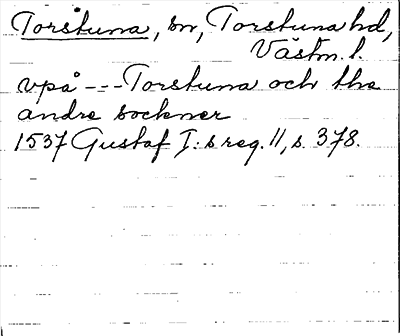 Torstuna, sn, Torstuna hd,
Västm. l.
vpå --- Torstuna och the
andre sockner
1537 Gustaf I:s reg. 11, s. 378.